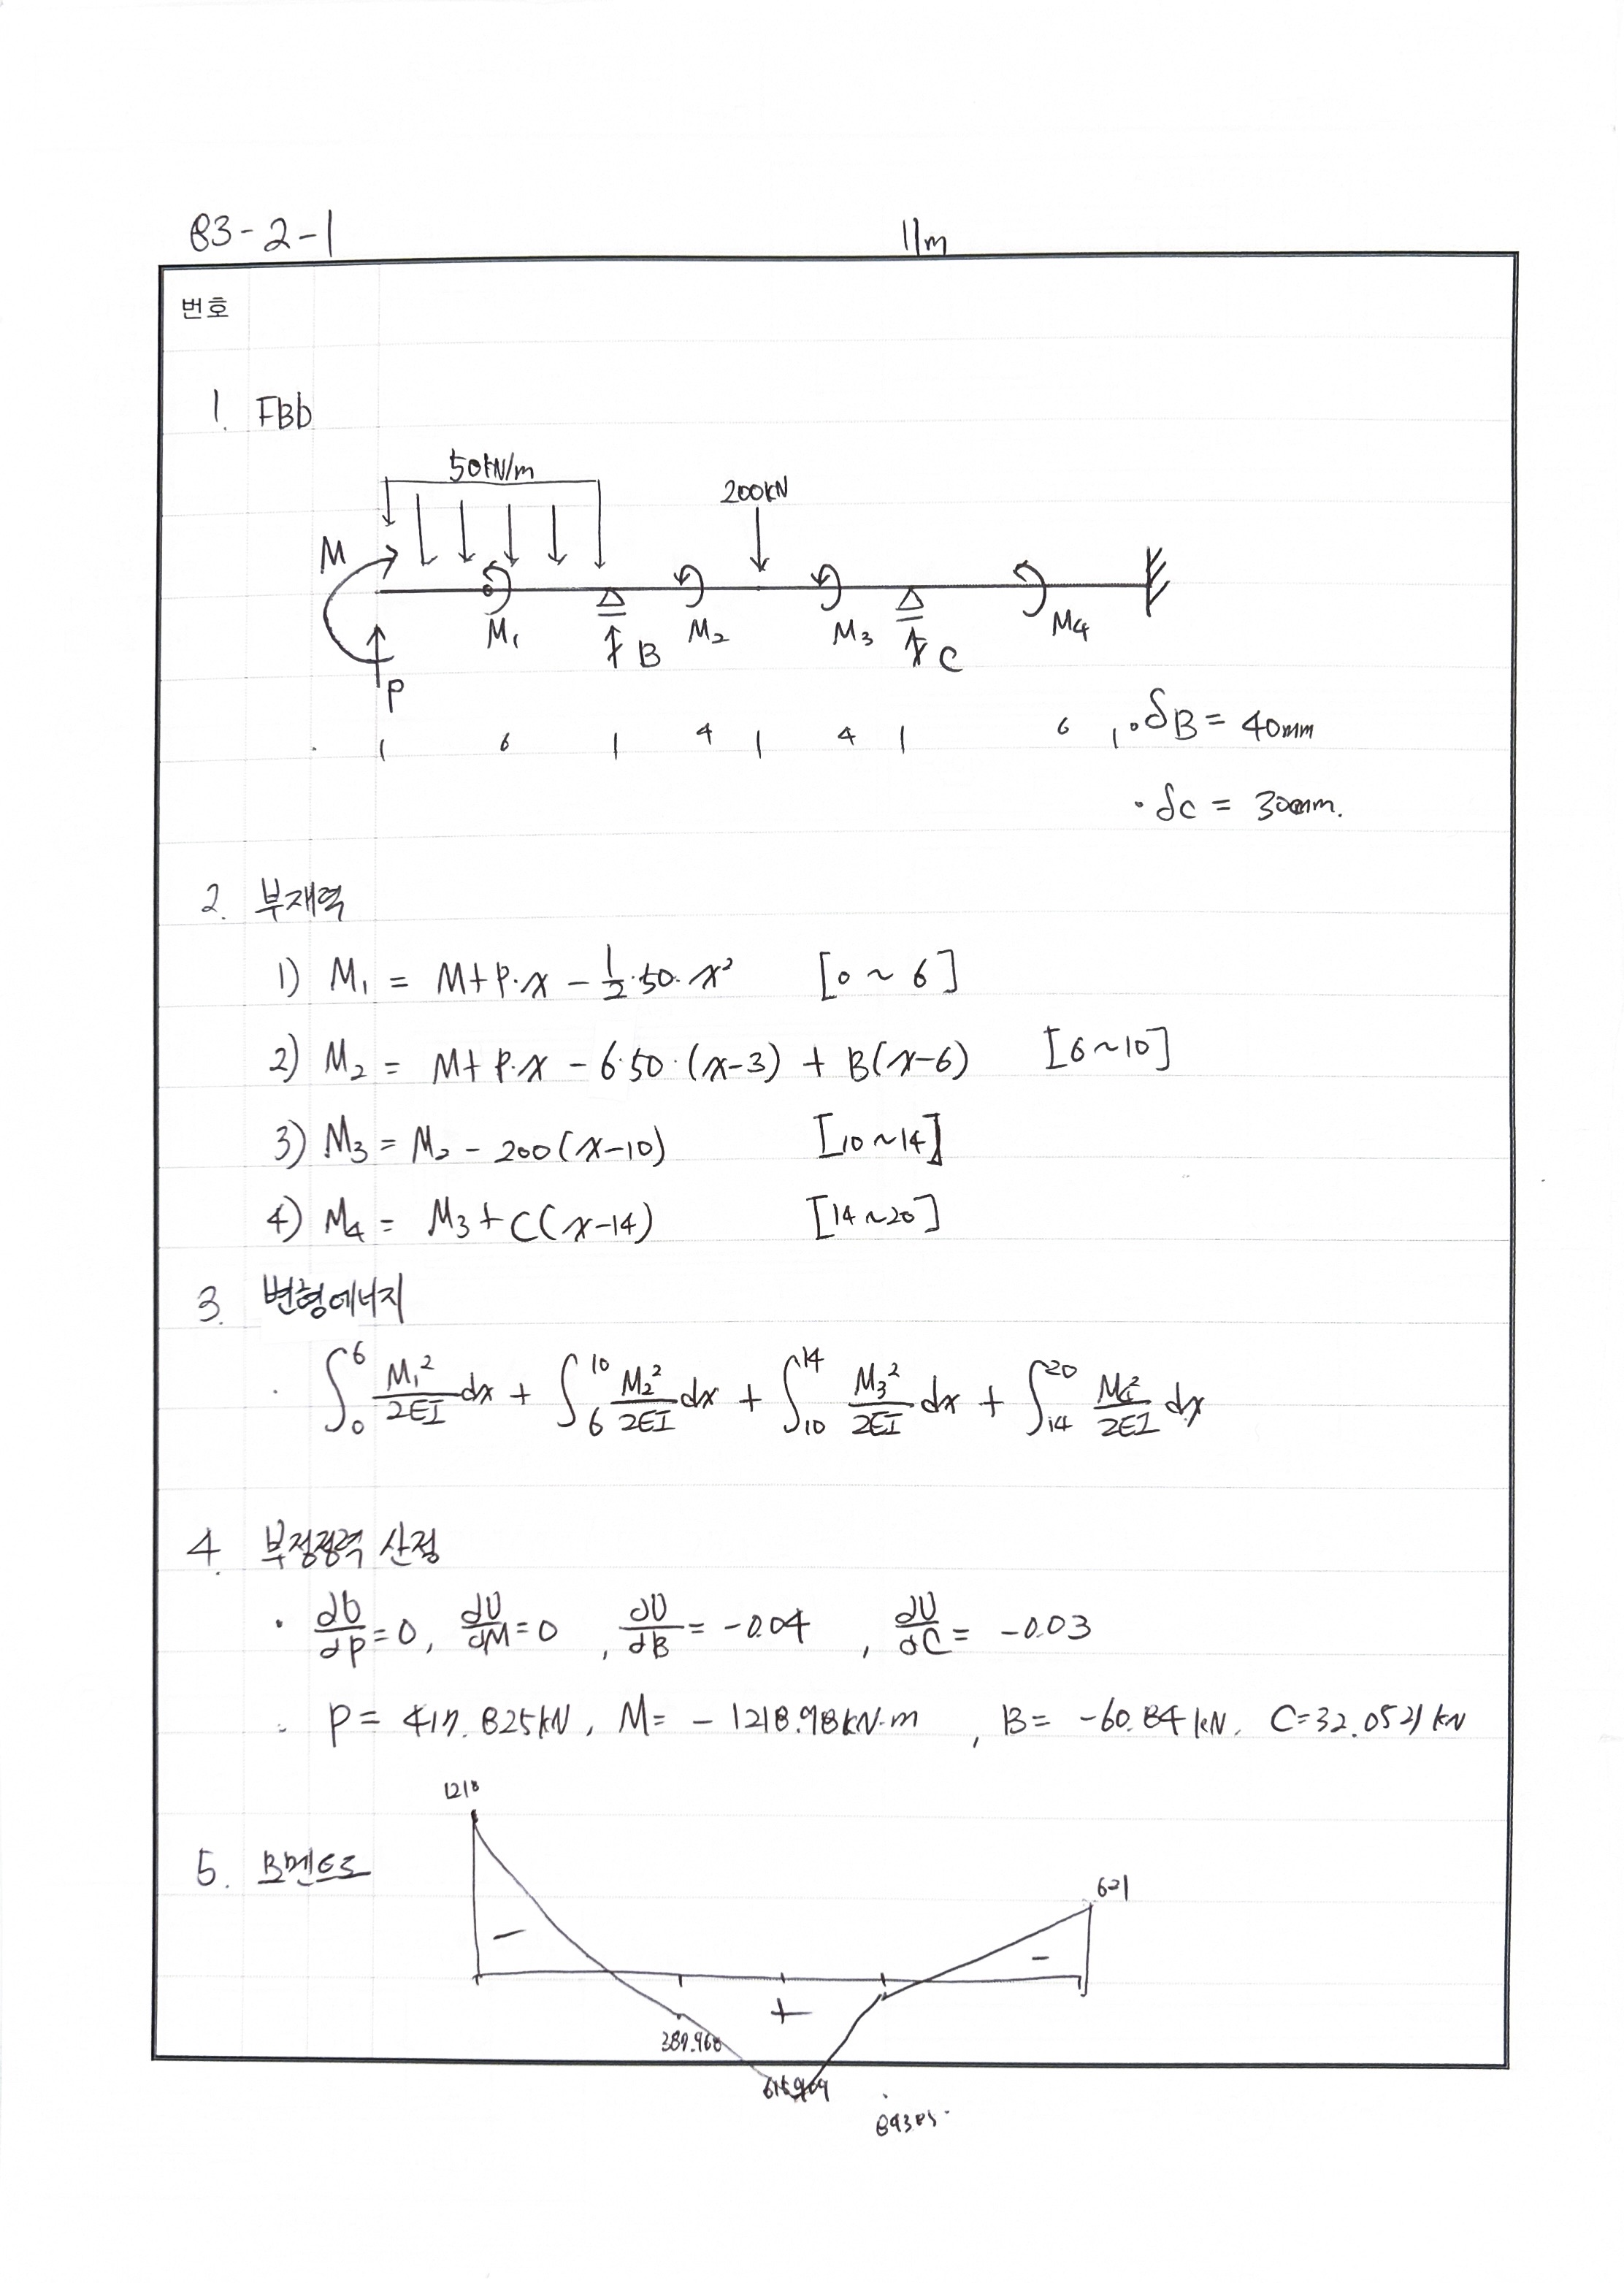 83-2-1
11m
번호
1. FBD
50kN/m
200kN
M
M₁
B
M₂
M₃
C
M₄
P
6 4 4 6
· δB = 40mm
· δc = 30mm.
2. 부재력
1) M₁ = M+P·x - 1/2·50·x² [0 ~ 6]
2) M₂ = M+P·x - 6·50·(x-3) + B(x-6) [6~10]
3) M₃ = M₂ - 200(x-10) [10~14]
4) M₄ = M₃+C(x-14) [14~20]
3. 변형에너지
· ∫₀⁶ M₁²/2EI dx + ∫₆¹⁰ M₂²/2EI dx + ∫₁₀¹⁴ M₃²/2EI dx + ∫₁₄²⁰ M₄²/2EI dx
4. 부정정력 산정
· ∂U/∂P=0, ∂U/∂M=0, ∂U/∂B= -0.04, ∂U/∂C= -0.03
P= 417.825kN, M= -1218.98kN·m, B= -60.84kN, C=32.0521kN
5. 모멘트도
1218
621
387.968